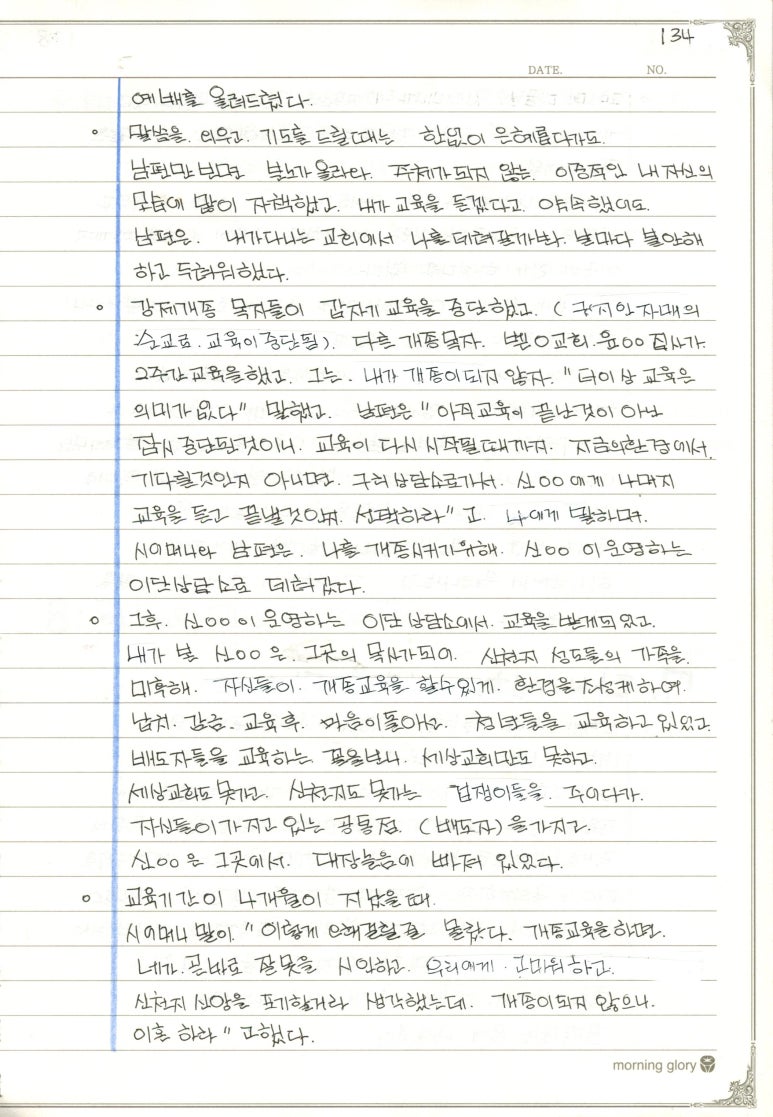 134
DATE. NO.
예배를 올려드렸다.
말씀을. 외우고. 기도를 드릴때는 한없이 은혜롭다가도.
남편만 보면 분노가 올라와. 주체가되지 않는. 이중적인 내 자신의
모습에 많이 자책했고. 내가 교육을 듣겠다고. 약속했어도.
남편은. 내가다니는 교회에서 나를 데려갈까봐. 날마다 불안해
하고 두려워했다.
강제개종 목자들이 갑자기 교육을 중단했고. ( 자매의
순교로. 교육이 중단됨). 다른 개종목자. 벧O교회. 윤OO 집사가.
2주간 교육을했고. 그는. 내가 개종이되지 않자. "더이상 교육은
의미가 없다" 말했고. 남편은 " 아직 교육이 끝난것이 아닌
잠시 중단된것이니. 교육이 다시 시작될때까지. 지금의환경에서.
기다릴것인지 아니면. 구리상담소로가서. 신OO 에게 나머지
교육을 듣고 끝낼것인지. 선택하라" 고. 나에게 말하며.
시어머니와 남편은. 나를 개종시키기위해. 신OO 이 운영하는
이단상담소로 데려갔다.
그후. 신OO 이 운영하는 이단 상담소에서. 교육을 받게되었고.
내가 본 신OO 은. 그곳의 목사가되어. 신천지 성도들의 가족을.
미혹해. 자신들이. 개종교육을 할수있게. 환경을 조성케하여.
납치. 감금. 교육후. 마음이돌아선. 청년들을 교육하고 있었고.
배도자들을 교육하는 꼴을보니. 세상교회만도 못하고.
세상교회도 못가고. 신천지도 못가는 겁쟁이들을. 주어다가.
자신들이 가지고 있는 공통점. (배도자) 을 가지고.
신OO 은 그곳에서. 대장놀음에 빠져 있었다.
교육기간이 4개월이 지났을 때.
시어머니 말이. " 이렇게 오래걸릴줄 몰랐다. 개종교육을 하면.
네가. 곧바로 잘못을 시인하고. 우리에게 고마워하고.
신천지 신앙을 포기할거라 생각했는데. 개종이되지 않으니.
이혼 하라" 고했다.
morning glory